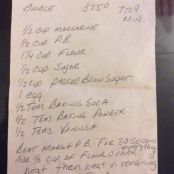 DOUBLE 375° 7 TO 9
MIN.
1/2 CUP MARGARINE
1/2 CUP P.B.
1 1/4 CUP FLOUR
1/2 CUP SUGAR
1/2 CUP PACKED BROWN SUGAR
1 EGG
1/2 TEAS BAKING SODA
1/2 TEAS BAKING POWDER
1/2 TEAS VANILLA
BEAT MARG & P.B. FOR 30 SECONDS
ADD 1/2 CUP OF FLOUR SUGAR everything
beat then beat in remaining